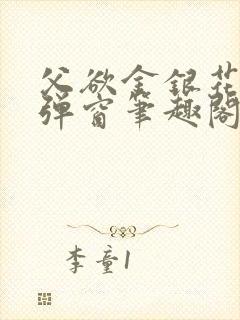 父欲金银花
弹窗笔趣阁
李童1